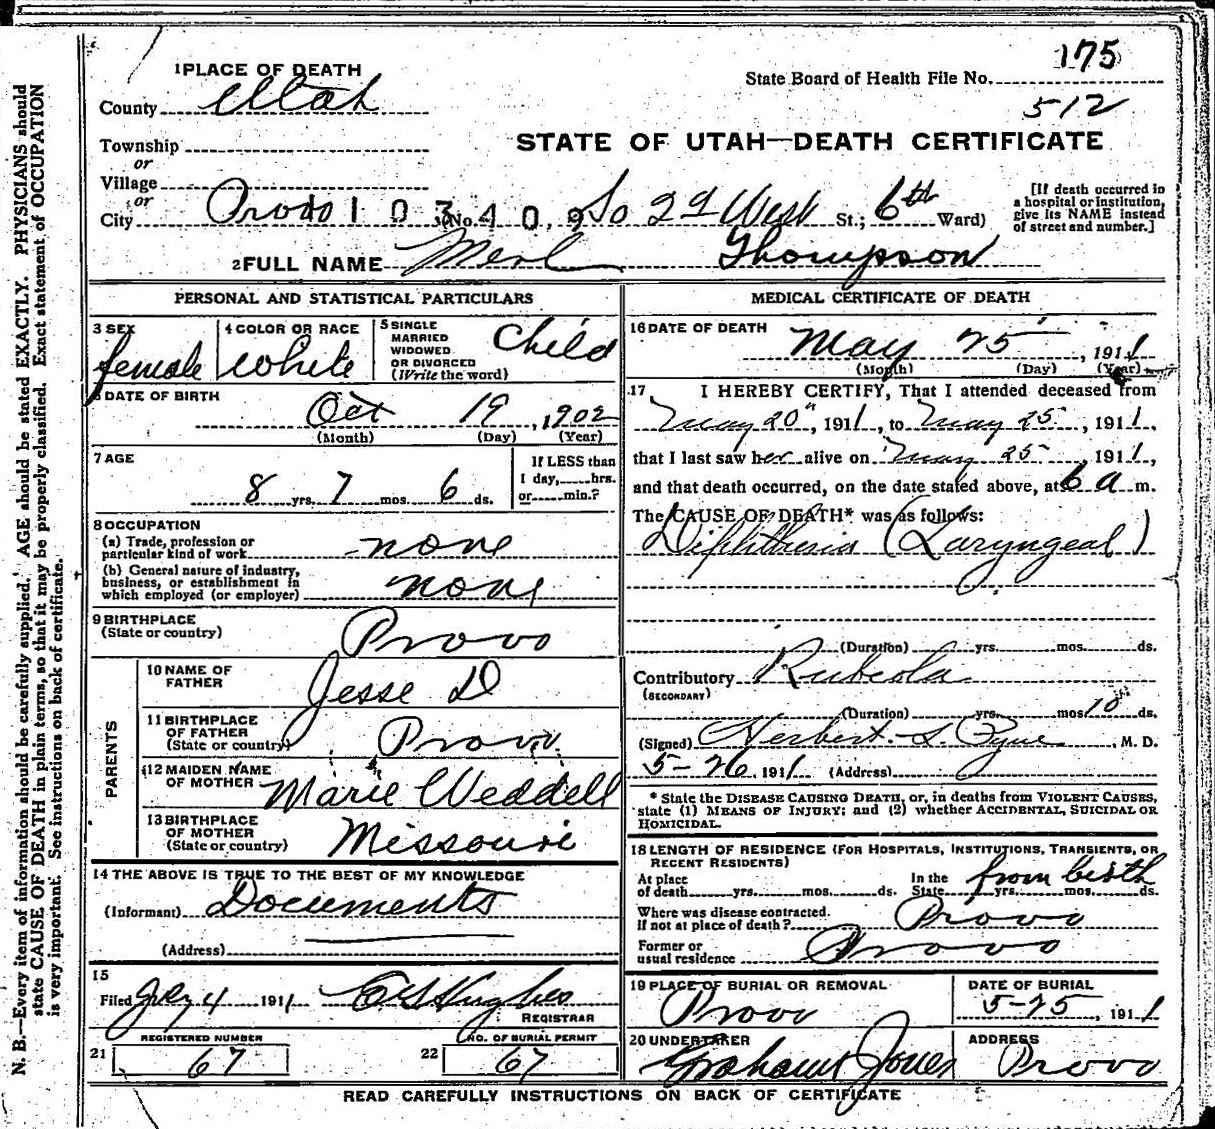 175
State Board of Health File No.
512
1 PLACE OF DEATH
County Utah
STATE OF UTAH—DEATH CERTIFICATE
Township
or
Village
or
City Provo 1 0 3 No. 4 0 9 So 2d West St.; 6th Ward)
[If death occurred in a hospital or institution, give its NAME instead of street and number.]
2 FULL NAME Merl Thompson
PERSONAL AND STATISTICAL PARTICULARS
3 SEX female
4 COLOR OR RACE White
5 SINGLE MARRIED WIDOWED OR DIVORCED (Write the word) Child
6 DATE OF BIRTH Oct 19, 1902
(Month) (Day) (Year)
7 AGE
8 yrs. 7 mos. 6 ds.
If LESS than 1 day, hrs. or min.?
8 OCCUPATION
(a) Trade, profession or particular kind of work none
(b) General nature of industry, business, or establishment in which employed (or employer) none
9 BIRTHPLACE (State or country) Provo
PARENTS
10 NAME OF FATHER Jesse D
11 BIRTHPLACE OF FATHER (State or country) Provo
12 MAIDEN NAME OF MOTHER Marie Weddell
13 BIRTHPLACE OF MOTHER (State or country) Missouri
14 THE ABOVE IS TRUE TO THE BEST OF MY KNOWLEDGE
(Informant) Documents
(Address)
15
Filed 4 1911 Hughes
REGISTRAR
REGISTERED NUMBER
21 67
NO. OF BURIAL PERMIT
22 67
MEDICAL CERTIFICATE OF DEATH
16 DATE OF DEATH May 25, 1911
(Month) (Day) (Year)
17 I HEREBY CERTIFY, That I attended deceased from
May 20, 1911, to May 25, 1911,
that I last saw her alive on May 25, 1911,
and that death occurred, on the date stated above, at 6 a m.
The CAUSE OF DEATH* was as follows:
Diphtheria (Laryngeal)
(Duration) yrs. mos. ds.
Contributory Rubeola
(SECONDARY)
(Duration) yrs. mos. 10 ds.
(Signed) Herbert S. Pyne, M. D.
5-26, 1911 (Address)
* State the DISEASE CAUSING DEATH, or, in deaths from VIOLENT CAUSES,
state (1) MEANS OF INJURY; and (2) whether ACCIDENTAL, SUICIDAL OR
HOMICIDAL.
18 LENGTH OF RESIDENCE (FOR HOSPITALS, INSTITUTIONS, TRANSIENTS, OR
RECENT RESIDENTS)
At place of death yrs. mos. ds. In the State from birth yrs. mos. ds.
Where was disease contracted. If not at place of death? Provo
Former or usual residence Provo
19 PLACE OF BURIAL OR REMOVAL Provo
DATE OF BURIAL 5-25, 1911
20 UNDERTAKER Graham Jones
ADDRESS Provo
READ CAREFULLY INSTRUCTIONS ON BACK OF CERTIFICATE
N. B.—Every item of information should be carefully supplied. AGE should be stated EXACTLY. PHYSICIANS should
state CAUSE OF DEATH in plain terms, so that it may be properly classified. Exact statement of OCCUPATION
is very important. See instructions on back of certificate.